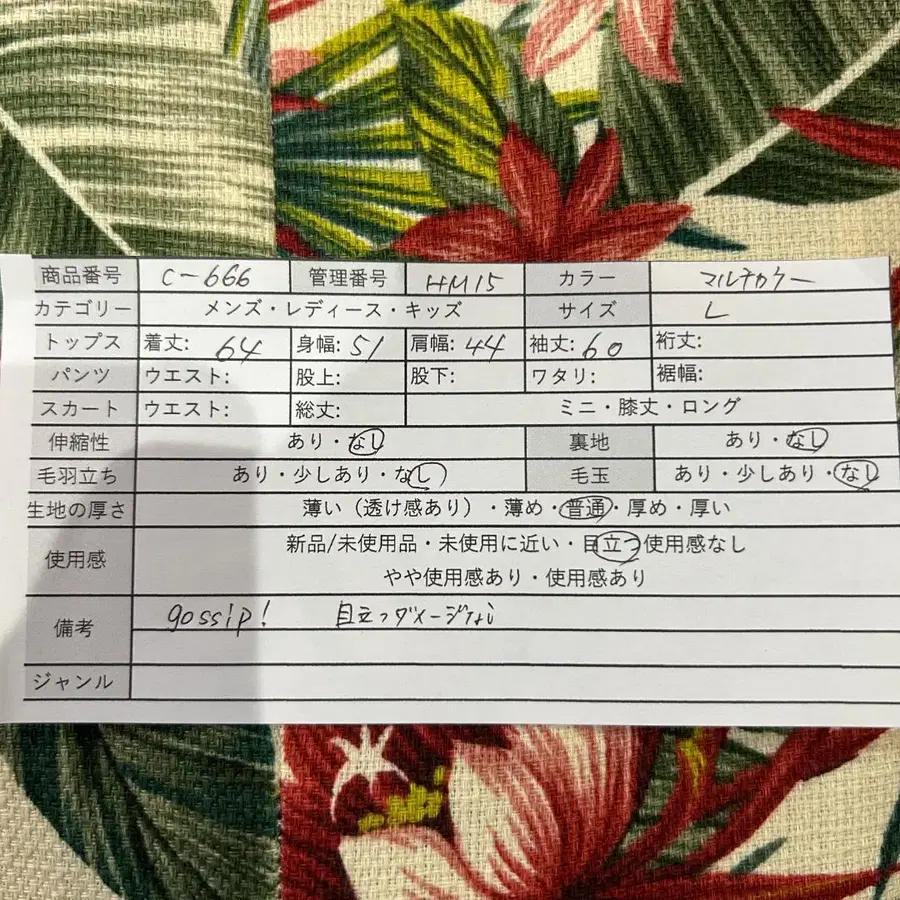 商品番号 C-666 管理番号 HM15 カラー マルチカラー
カテゴリー メンズ・レディース・キッズ サイズ L
トップス 着丈: 64 身幅: 51 肩幅: 44 袖丈: 60 裄丈:
パンツ ウエスト: 股上: 股下: ワタリ: 裾幅:
スカート ウエスト: 総丈: ミニ・膝丈・ロング
伸縮性 あり・なし 裏地 あり・なし
毛羽立ち あり・少しあり・なし 毛玉 あり・少しあり・なし
生地の厚さ 薄い（透け感あり）・薄め・普通・厚め・厚い
使用感 新品/未使用品・未使用に近い・目立つ使用感なし
やや使用感あり・使用感あり
備考 gossip! 目立つダメージなし
ジャンル